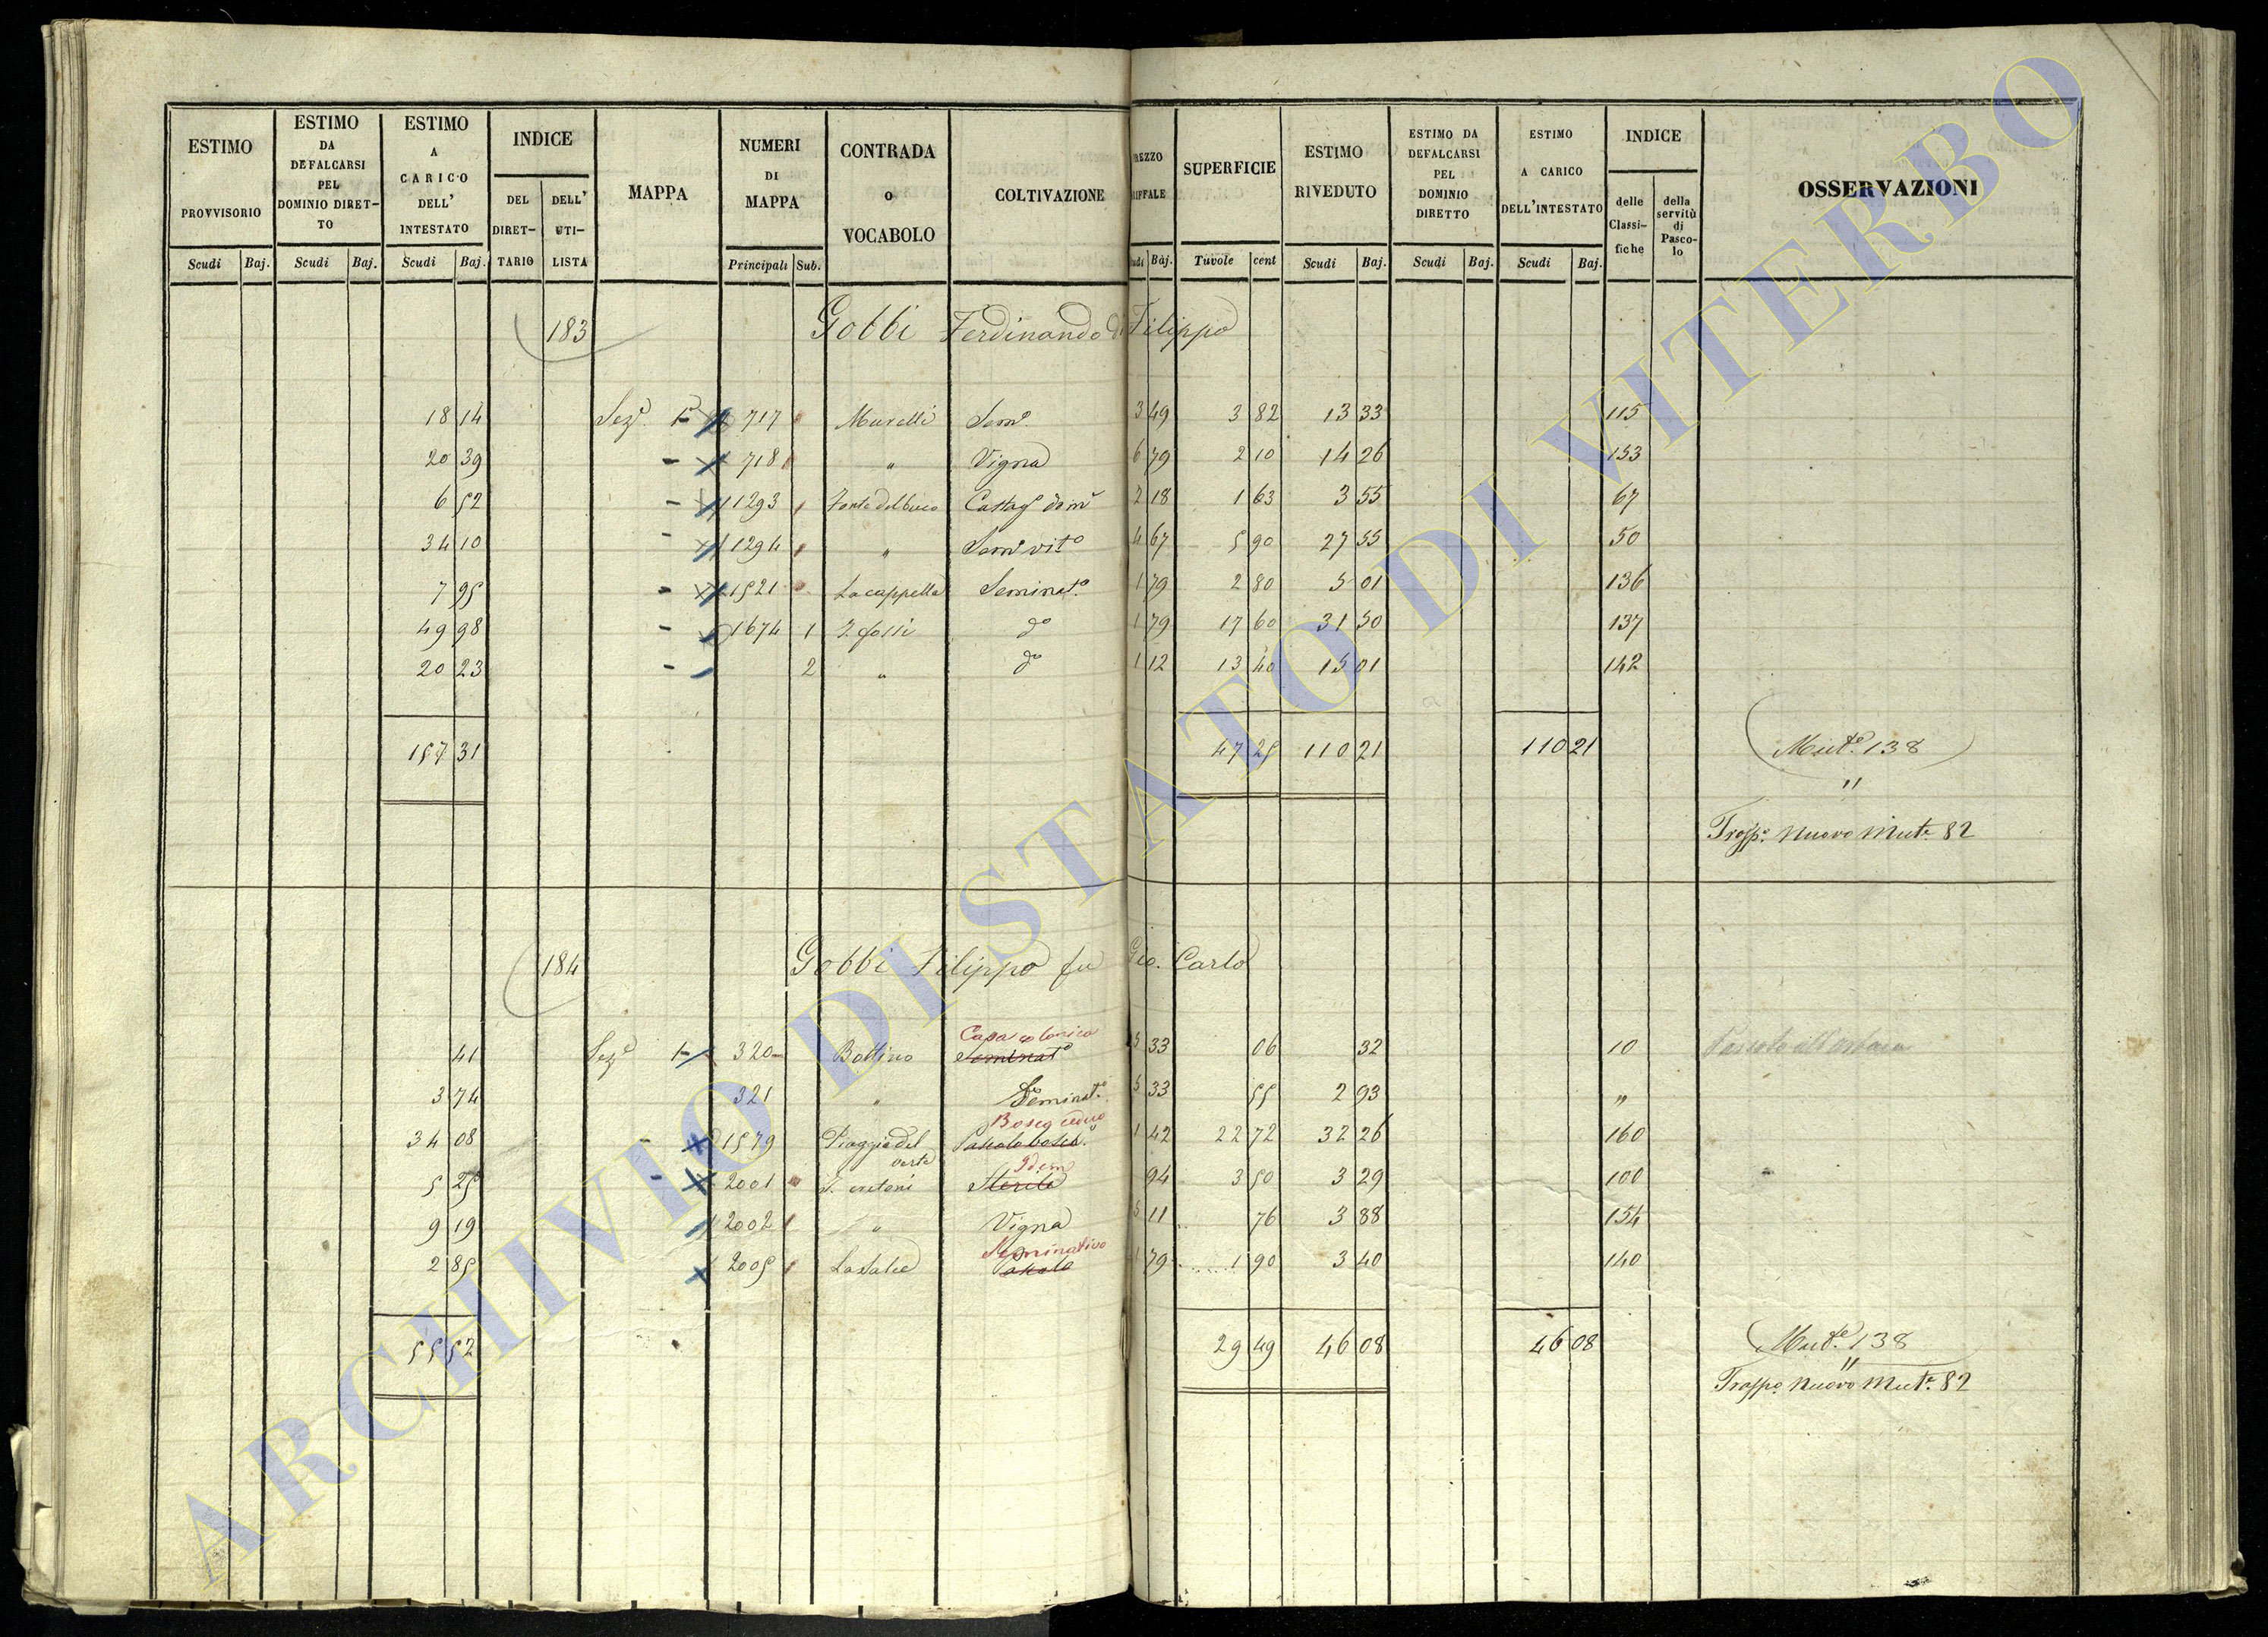 ESTIMO PROVVISORIO
ESTIMO DA DEFALCARSI PEL DOMINIO DIRET-TO
ESTIMO A CARICO DELL' INTESTATO
INDICE
DEL DIRET-TARIO
DELL' UTI-LISTA
MAPPA
NUMERI DI MAPPA
CONTRADA o VOCABOLO
COLTIVAZIONE
REZZO RIFFALE
SUPERFICIE
ESTIMO RIVEDUTO
ESTIMO DA DEFALCARSI PEL DOMINIO DIRETTO
ESTIMO A CARICO DELL'INTESTATO
INDICE
delle Classi-fiche
della servitù di Pasco-lo
OSSERVAZIONI
Scudi Baj. Scudi Baj. Scudi Baj. Principali Sub. udi Baj. Tavole cent Scudi Baj. Scudi Baj. Scudi Baj.
183 Gobbi Ferdinando di Filippo
18 14 Sez.e 1a 717 Murelli Sem.o 3 49 3 82 13 33 115
20 39 - 718 " Vigna 6 79 2 10 14 26 153
6 52 - 1293 Fonte del buco Castag dom 2 18 1 63 3 55 67
34 10 - 1294 " Sem vit.o 4 67 5 90 27 55 50
7 95 - 1521 La cappella Seminat.o 1 79 2 80 5 01 136
49 98 - 1674 1 I fossi do 1 79 17 60 31 50 137
20 23 - 2 " do 1 12 13 40 15 01 142
157 31 47 25 110 21 110 21 Mut.e 138
"
Trasp.o nuovo Mut.e 82
184 Gobbi Filippo fu Gio. Carlo
Casa colonica
41 Sez.e 1- 320 Bottino Seminat.o 5 33 06 32 10
3 74 321 " Seminat.o 5 33 55 2 93 "
Bosco ceduo
34 08 - 1579 Piaggia del Pascolo bosc.o 1 42 22 72 32 26 160
Idem
5 25 - 2001 Sterile 94 3 50 3 29 100
9 19 2002 " Vigna 5 11 76 3 88 154
Seminativo
2 85 2005 Pascolo 1 79 1 90 3 40 140
55 52 29 49 46 08 46 08 Mut.e 138
"
Trasp.o nuovo Mut.e 82
ARCHIVIO DI STATO DI VITERBO